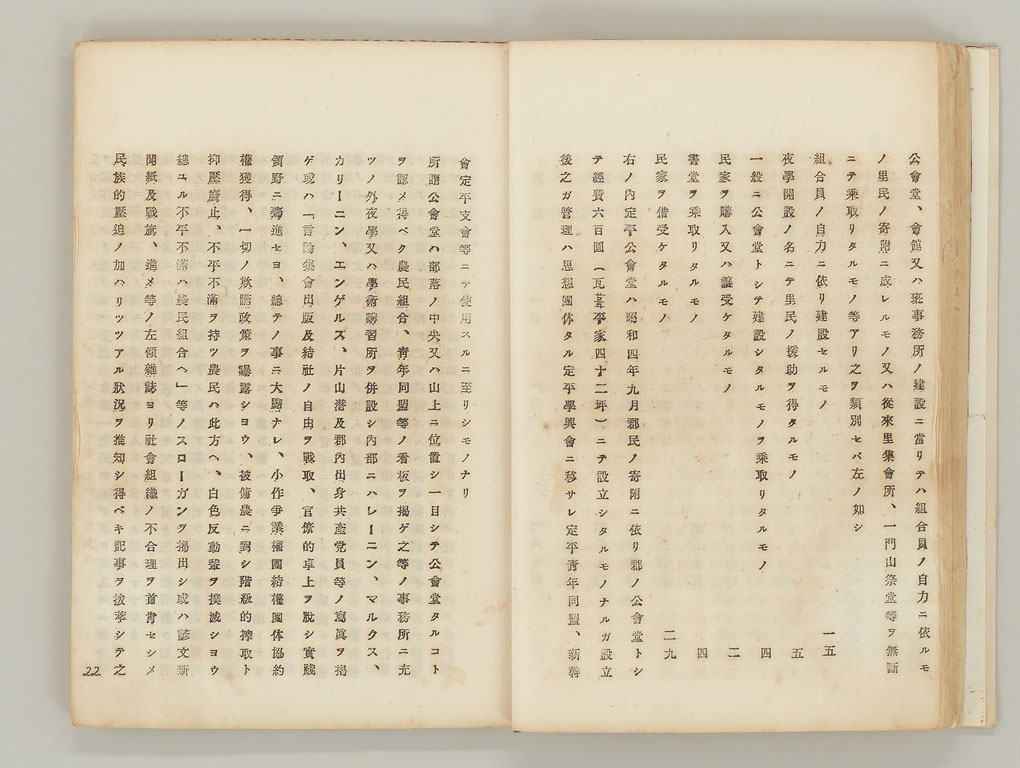 公會堂、會館又ハ班事務所ノ建設ニ當リテハ組合員ノ自力ニ依ルモ
ノ里民ノ寄附ニ成レルモノ又ハ從來里集會所、一門山祭堂等ヲ無斷
ニテ乘取リタルモノ等アリ之ヲ類別セバ左ノ如シ
組合員ノ自力ニ依リ建設セルモノ 一五
夜學開設ノ名ニテ里民ノ援助ヲ得タルモノ 五
一般ニ公會堂トシテ建設シタルモノヲ乘取リタルモノ 四
民家ヲ購入又ハ讓受ケタルモノ 二
書堂ヲ乘取リタルモノ 四
民家ヲ借受ケタルモノ 二九
右ノ內定平公會堂ハ昭和四年九月郡民ノ寄附ニ依リ郡ノ公會堂トシ
テ經費六百圓（瓦葺平家四十二坪）ニテ設立シタルモノナルガ設立
後之ガ管理ハ思想團体タル定平學興會ニ移サレ定平青年同盟、新幹
會定平支會等ニテ使用スルニ至リシモノナリ
所謂公會堂ハ部落ノ中央又ハ山上ニ位置シ一目シテ公會堂タルコト
ヲ認メ得ベク農民組合、靑年同盟等ノ看板ヲ揭ゲ之等ノ事務所ニ充
ツノ外夜學又ハ學術講習所ヲ併設シ內部ニハレーニン、マルクス、
カリーニン、エンゲルス、片山潜及郡內出身共產党員等ノ寫眞ヲ揭
ゲ或ハ「言論集會出版及結社ノ自由ヲ戰取、官僚的卓上ヲ脫シ實踐
領野ニ邁進セヨ、總テノ事ニ大膽ナレ、小作爭議權團結權團体協約
權獲得、一切ノ欺瞞政策ヲ曝露シヨウ、被傭農ニ對シ階級的搾取ト
抑壓廢止、不平不滿ヲ持ツ農民ハ此方ヘ、白色反動輩ヲ撲滅シヨウ
總ユル不平不滿ハ農民組合ヘ」等ノスローガンヲ揭出シ或ハ諺文新
聞紙及戰旗、進メ等ノ左傾雜誌ヨリ社會組織ノ不合理ヲ首肯セシメ
民族的壓迫ノ加ハリツツアル狀況ヲ推知シ得ベキ記事ヲ拔萃シテ之
22